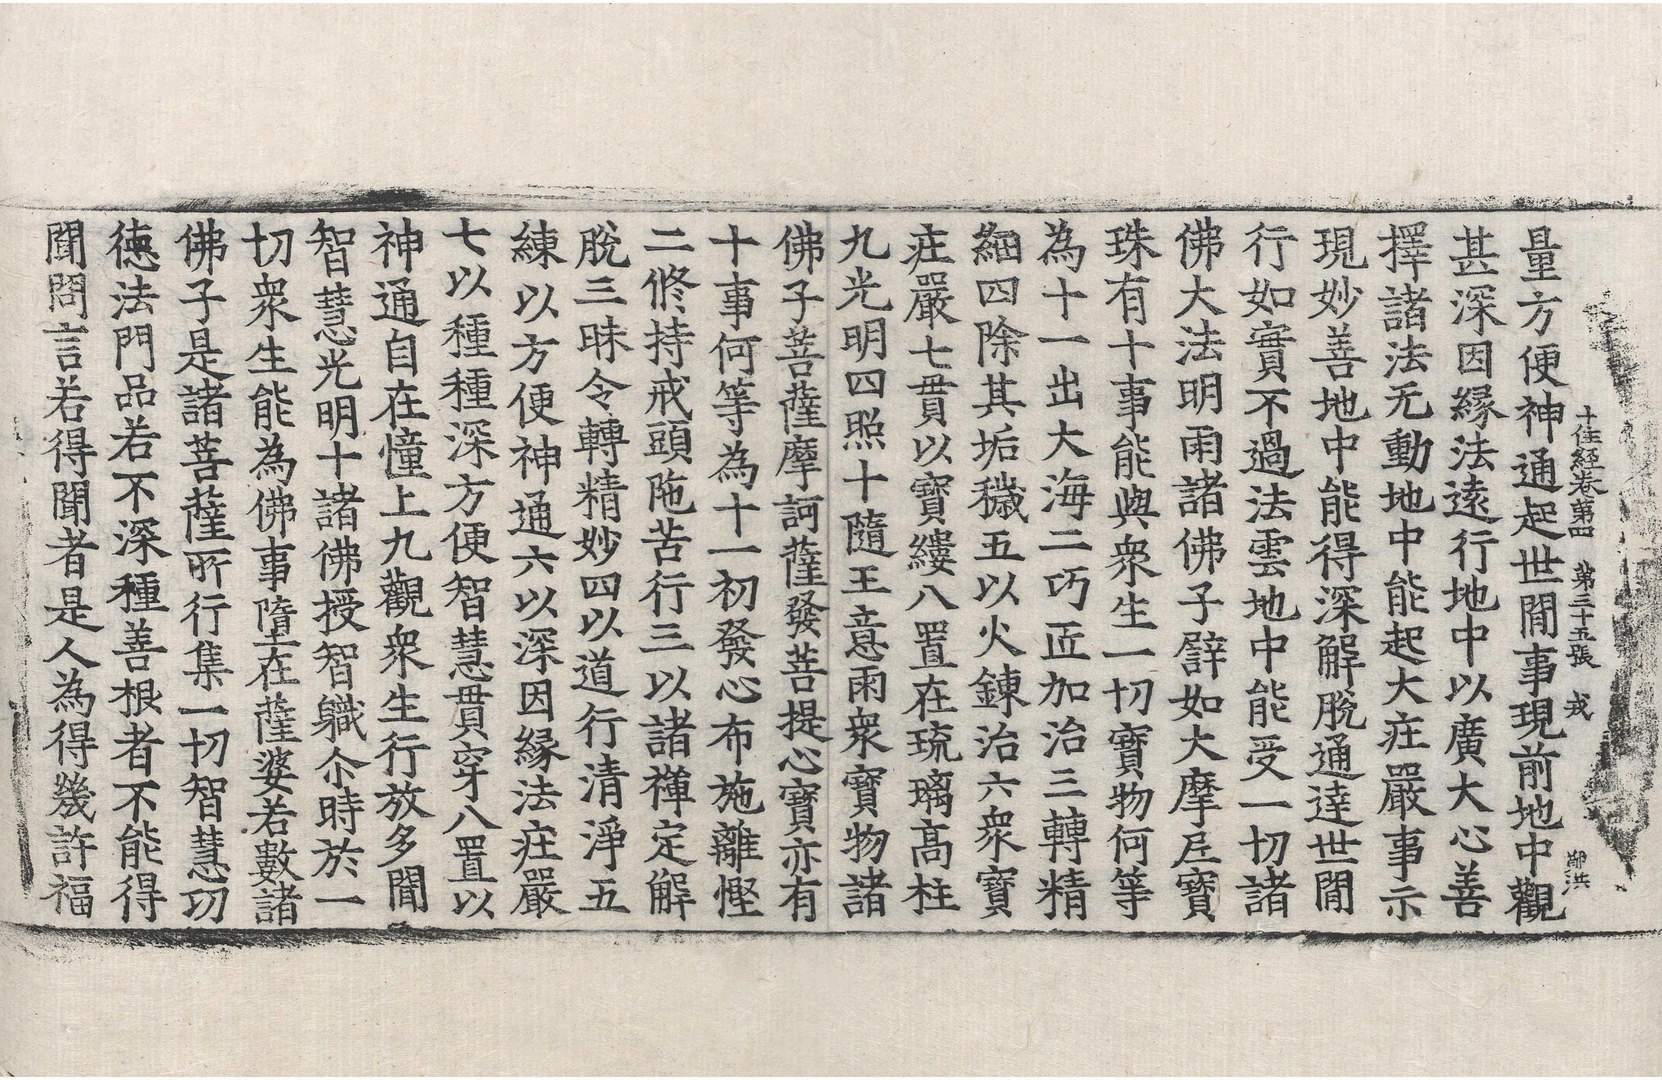 十住經卷第四　第三十五張　戎　鄭洪
量方便神通起世閒事現前地中觀
甚深因縁法遠行地中以廣大心善
擇諸法无動地中能起大庄嚴事示
現妙善地中能得深解脫通達世閒
行如實不過法雲地中能受一切諸
佛大法明雨諸佛子譬如大摩尼寶
珠有十事能與衆生一切寶物何等
為十一出大海二巧匠加治三轉精
緻四除其垢穢五以火鍊治六衆寶
庄嚴七貫以寶縷八置在琉璃髙柱
九光明四照十隨王意雨衆寶物諸
佛子菩薩摩訶薩發菩提心寶亦有
十事何等為十一初發心布施離慳
二修持戒頭陁苦行三以諸禪定解
脫三昧令轉精妙四以道行清淨五
練以方便神通六以深因縁法庄嚴
七以種種深方便智慧貫穿八置以
神通自在幢上九觀衆生行放多聞
智慧光明十諸佛授智職尒時於一
切衆生能為佛事墮在薩婆若數諸
佛子是諸菩薩所行集一切智慧功
德法門品若不深種善根者不能得
聞問言若得聞者是人為得幾許福